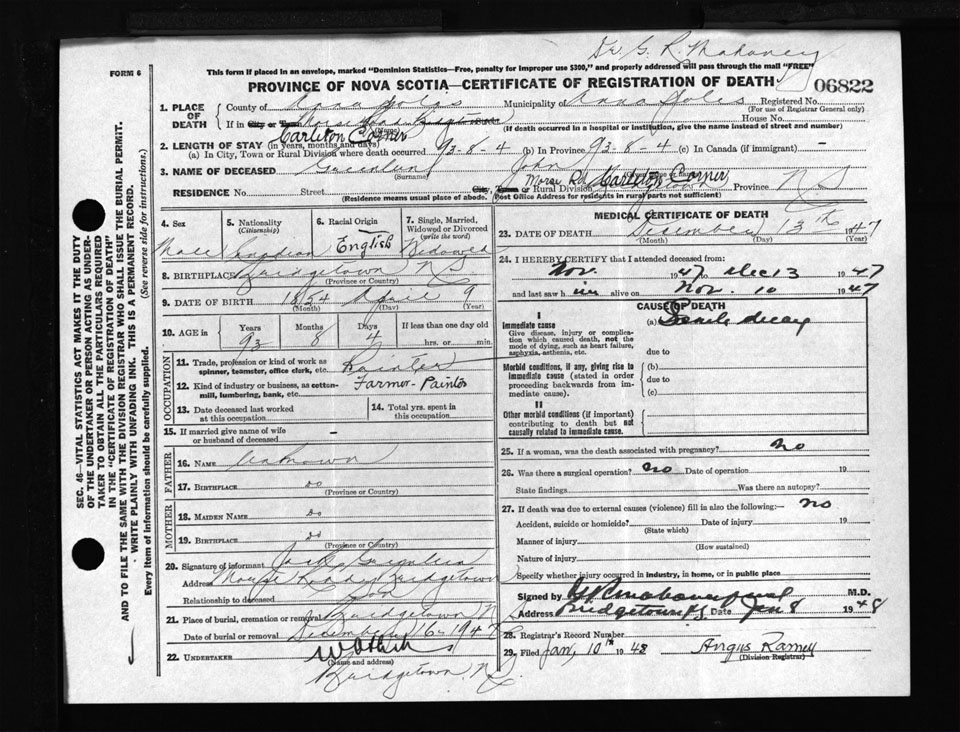 Dr. G. R. Mahaney
FORM 6
This form if placed in an envelope, marked "Dominion Statistics—Free, penalty for improper use $300," and properly addressed will pass through the mail "FREE"
PROVINCE OF NOVA SCOTIA—CERTIFICATE OF REGISTRATION OF DEATH
06822
1. PLACE OF DEATH
County of Annapolis Municipality of Annapolis Registered No.
(For use of Registrar General only)
If in City or Town Morse Road Bridgetown Street House No.
(Name) (If death occurred in a hospital or institution, give the name instead of street and number)
Carleton Corner
2. LENGTH OF STAY (in years, months and days)
(a) In City, Town or Rural Division where death occurred 93-8-4 (b) In Province 93-8-4 (c) In Canada (if immigrant) –
3. NAME OF DECEASED John
(Surname)
RESIDENCE No. Street City, Town or Rural Division Morse Rd Carleton Corner Province N S
(Residence means usual place of abode. Post Office Address for residents in rural parts not sufficient)
4. Sex
Male
5. Nationality
(Citizenship)
Canadian
6. Racial Origin
English
7. Single, Married, Widowed or Divorced
(write the word)
Widowed
8. BIRTHPLACE Bridgetown N S
(Province or Country)
9. DATE OF BIRTH 1854 April 9
(Month) (Day) (Year)
10. AGE in
Years Months Days If less than one day old
93 8 4 hrs. or min.
OCCUPATION
11. Trade, profession or kind of work as spinner, teamster, office clerk, etc. Painter
12. Kind of industry or business, as cotton-mill, lumbering, bank, etc. Farmer - Painter
13. Date deceased last worked at this occupation
14. Total yrs. spent in this occupation
15. If married give name of wife or husband of deceased –
FATHER
16. NAME Unknown
17. BIRTHPLACE do
(Province or Country)
MOTHER
18. MAIDEN NAME do
19. BIRTHPLACE do
(Province or Country)
20. Signature of informant Jack
Address Morse Road Bridgetown
Relationship to deceased Son
21. Place of burial, cremation or removal Bridgetown N S
Date of burial or removal December 1947
22. UNDERTAKER
(Name and address)
Bridgetown, N.S.
MEDICAL CERTIFICATE OF DEATH
23. DATE OF DEATH December 13th 1947
(Month) (Day) (Year)
24. I HEREBY CERTIFY that I attended deceased from:
Nov. 1947 to Dec 13 1947
and last saw him alive on Nov. 10 1947
CAUSE OF DEATH
I
Immediate cause
Give disease, injury or complication which caused death, not the mode of dying, such as heart failure, asphyxia, asthenia, etc.
(a) Senile decay
due to
Morbid conditions, if any, giving rise to immediate cause (stated in order proceeding backwards from immediate cause).
(b)
due to
(c)
II
Other morbid conditions (if important) contributing to death but not causally related to immediate cause.
25. If a woman, was the death associated with pregnancy? no
26. Was there a surgical operation? no Date of operation 19
State findings Was there an autopsy?
27. If death was due to external causes (violence) fill in also the following:— no
Accident, suicide or homicide? Date of injury 19
(State which)
Manner of injury
(How sustained)
Nature of injury
Specify whether injury occurred in industry, in home, or in public place
Signed by M.D.
Address Bridgetown N.S. Date Jan 8 1948
28. Registrar's Record Number
29. Filed Jan, 10th 1948 Angus Ramey
(Division Registrar)
SEC. 46—VITAL STATISTICS ACT MAKES IT THE DUTY
OF THE UNDERTAKER OR PERSON ACTING AS UNDER-
TAKER TO OBTAIN ALL THE PARTICULARS REQUIRED
IN THE "CERTIFICATE OF REGISTRATION OF DEATH"
AND TO FILE THE SAME WITH THE DIVISION REGISTRAR WHO SHALL ISSUE THE BURIAL PERMIT.
WRITE PLAINLY WITH UNFADING INK. THIS IS A PERMANENT RECORD.
Every item of information should be carefully supplied. (See reverse side for instructions.)